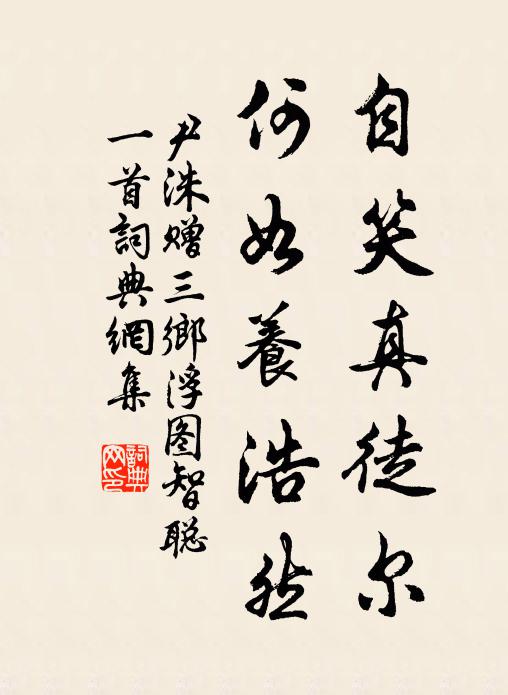 自笑真徒尔
何如養浩然
尹洙赠三鄉浮图智聪
一首詞典網集
詞典网印